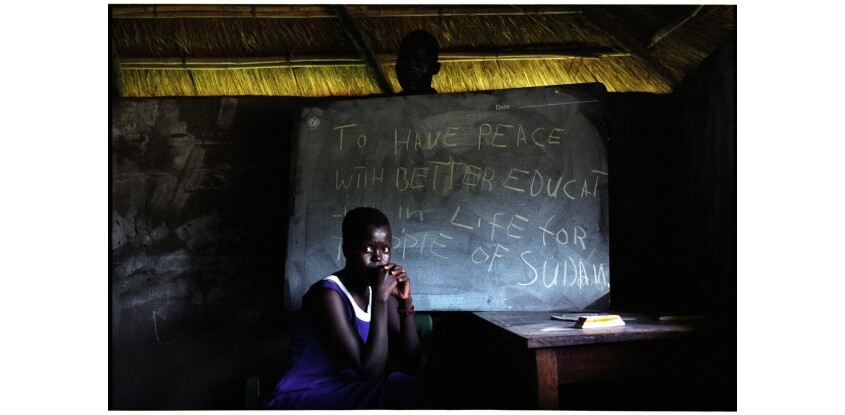 Date
TO HAVE PEACE
WITH BETTER EDUCAT
in LIFE FOR
OF SUDAN.